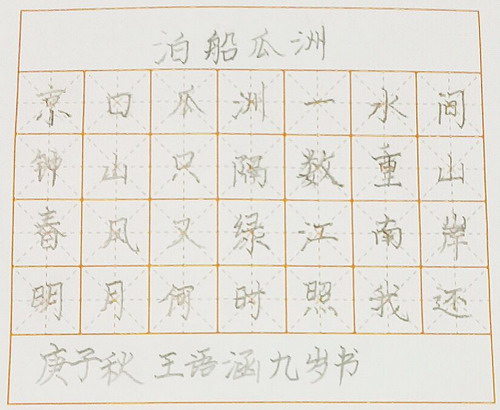 泊船瓜洲
京口瓜洲一水间
钟山只隔数重山
春风又绿江南岸
明月何时照我还
庚子秋 王语涵九岁书